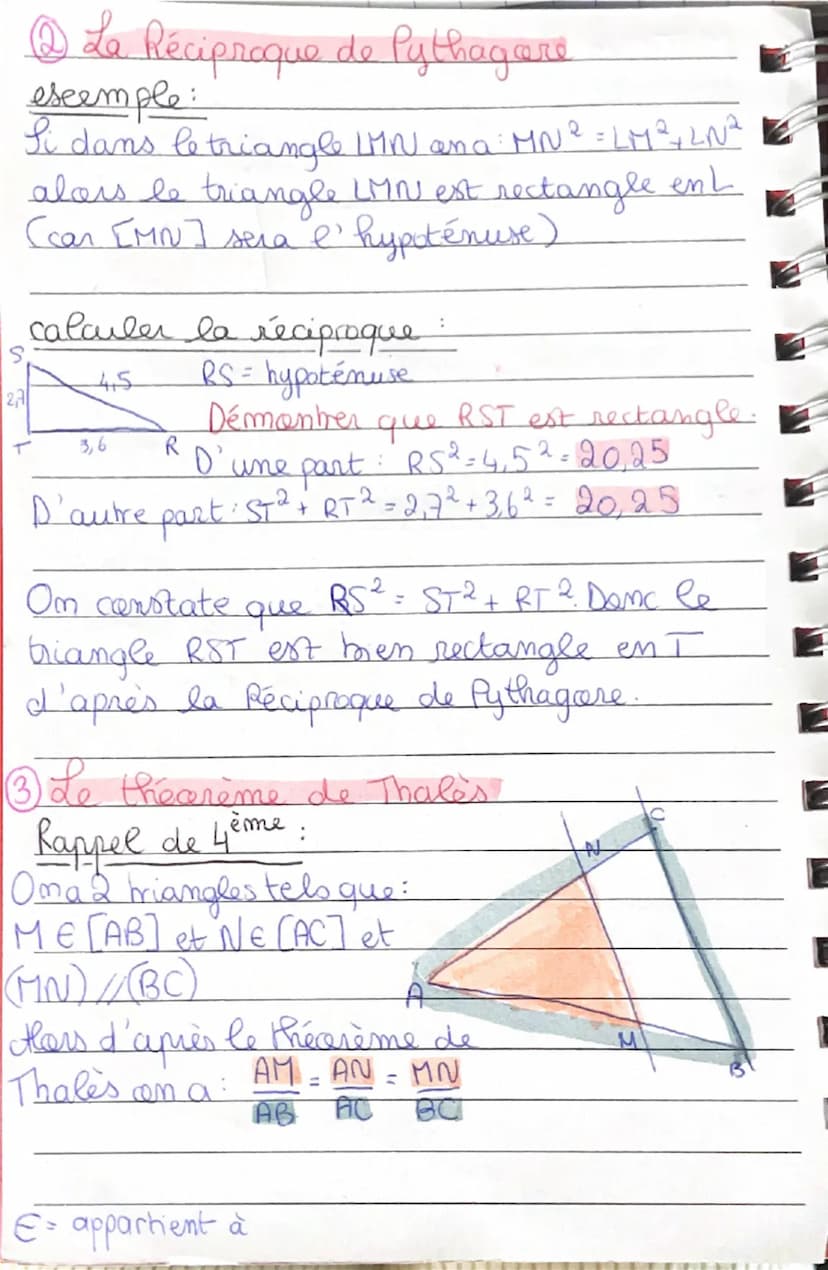 ② La Réciproque de Pythagore
exemple :
Si dans le triangle LMN on a : MN² = LM² + LN²
alors le triangle LMN est rectangle en L
(car [MN] sera l'hypoténuse)
calculer la réciproque :
S
4,5 RS = hypoténuse
2,7
Démontrer que RST est rectangle.
T 3,6 R
D'une part : RS² = 4,5² = 20,25
D'autre part : ST² + RT² = 2,7² + 3,6² = 20,25
On constate que RS² = ST² + RT². Donc le
triangle RST est bien rectangle en T
d'après la Réciproque de Pythagore.
③ Le théorème de Thalès
Rappel de 4ème :
On a 2 triangles tels que :
M ∈ [AB] et N ∈ [AC] et
(MN) // (BC)
Alors d'après le théorème de
Thalès on a : AM/AB = AN/AC = MN/BC
C
N
A
M
B
∈ = appartient à